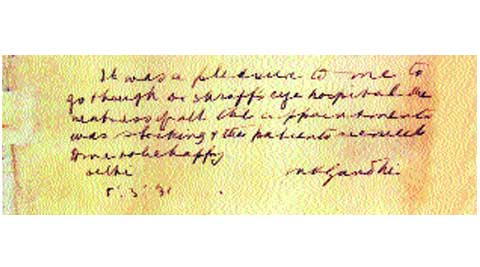 It was a pleasure to me to
go though Dr Shroff's eye hospital. The
neatness of all the appointments
was striking & the patients seemed
to me to be happy
Delhi MKGandhi
5.3.31